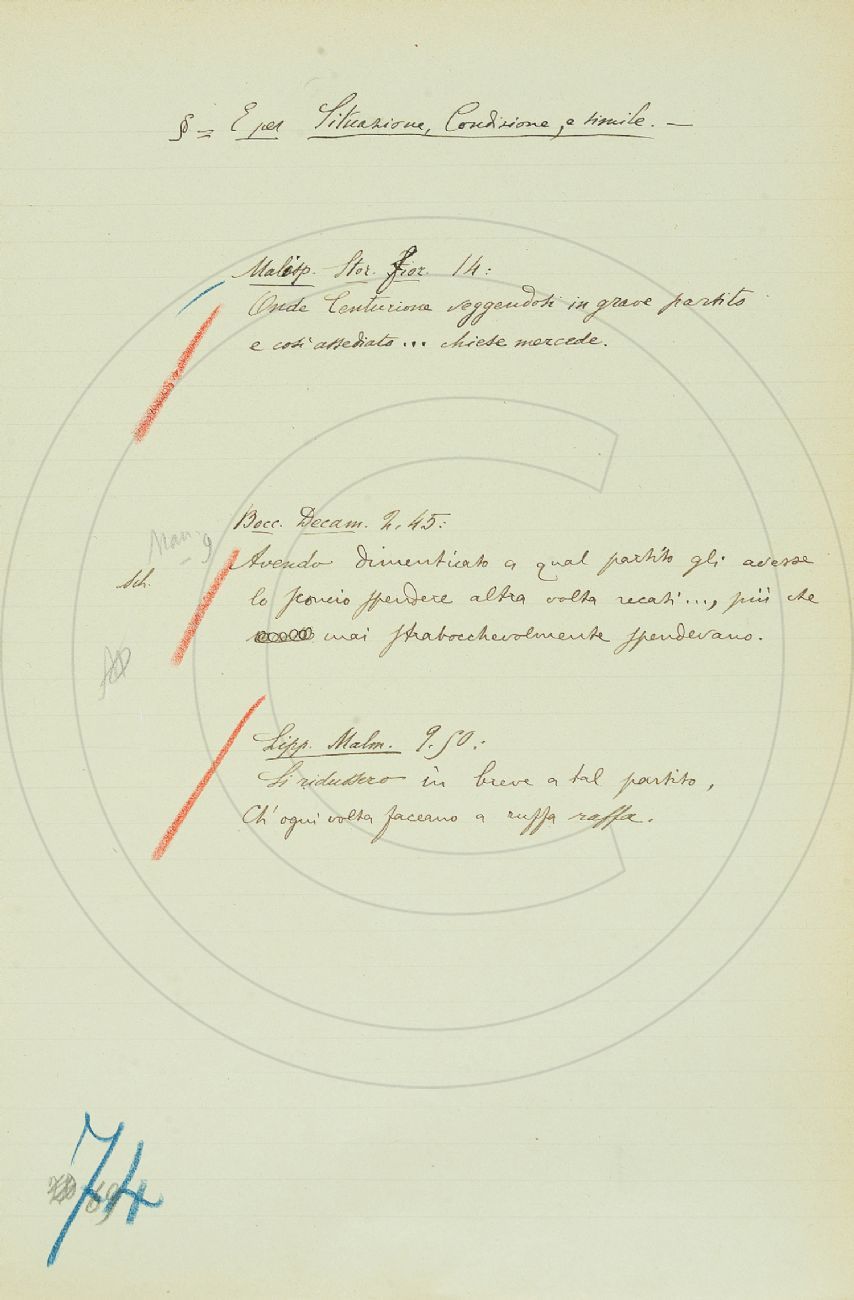 § = E per Situazione, Condizione, e simile. —
Malisp. Stor. Fior. 14:
Onde Centurione veggendosi in grave partito
e così assediato... chiese mercede.
Bocc. Decam. 2.45:
Man. 9
sch.
Avendo dimenticato a qual partito gli avesse
lo sconcio spendere altra volta recati..., più che
mai strabocchevolmente spendevano.
Lipp. Malm. 9.50:
Si ridussero in breve a tal partito,
Ch'ogni volta faceano a ruffa raffa.
74
69